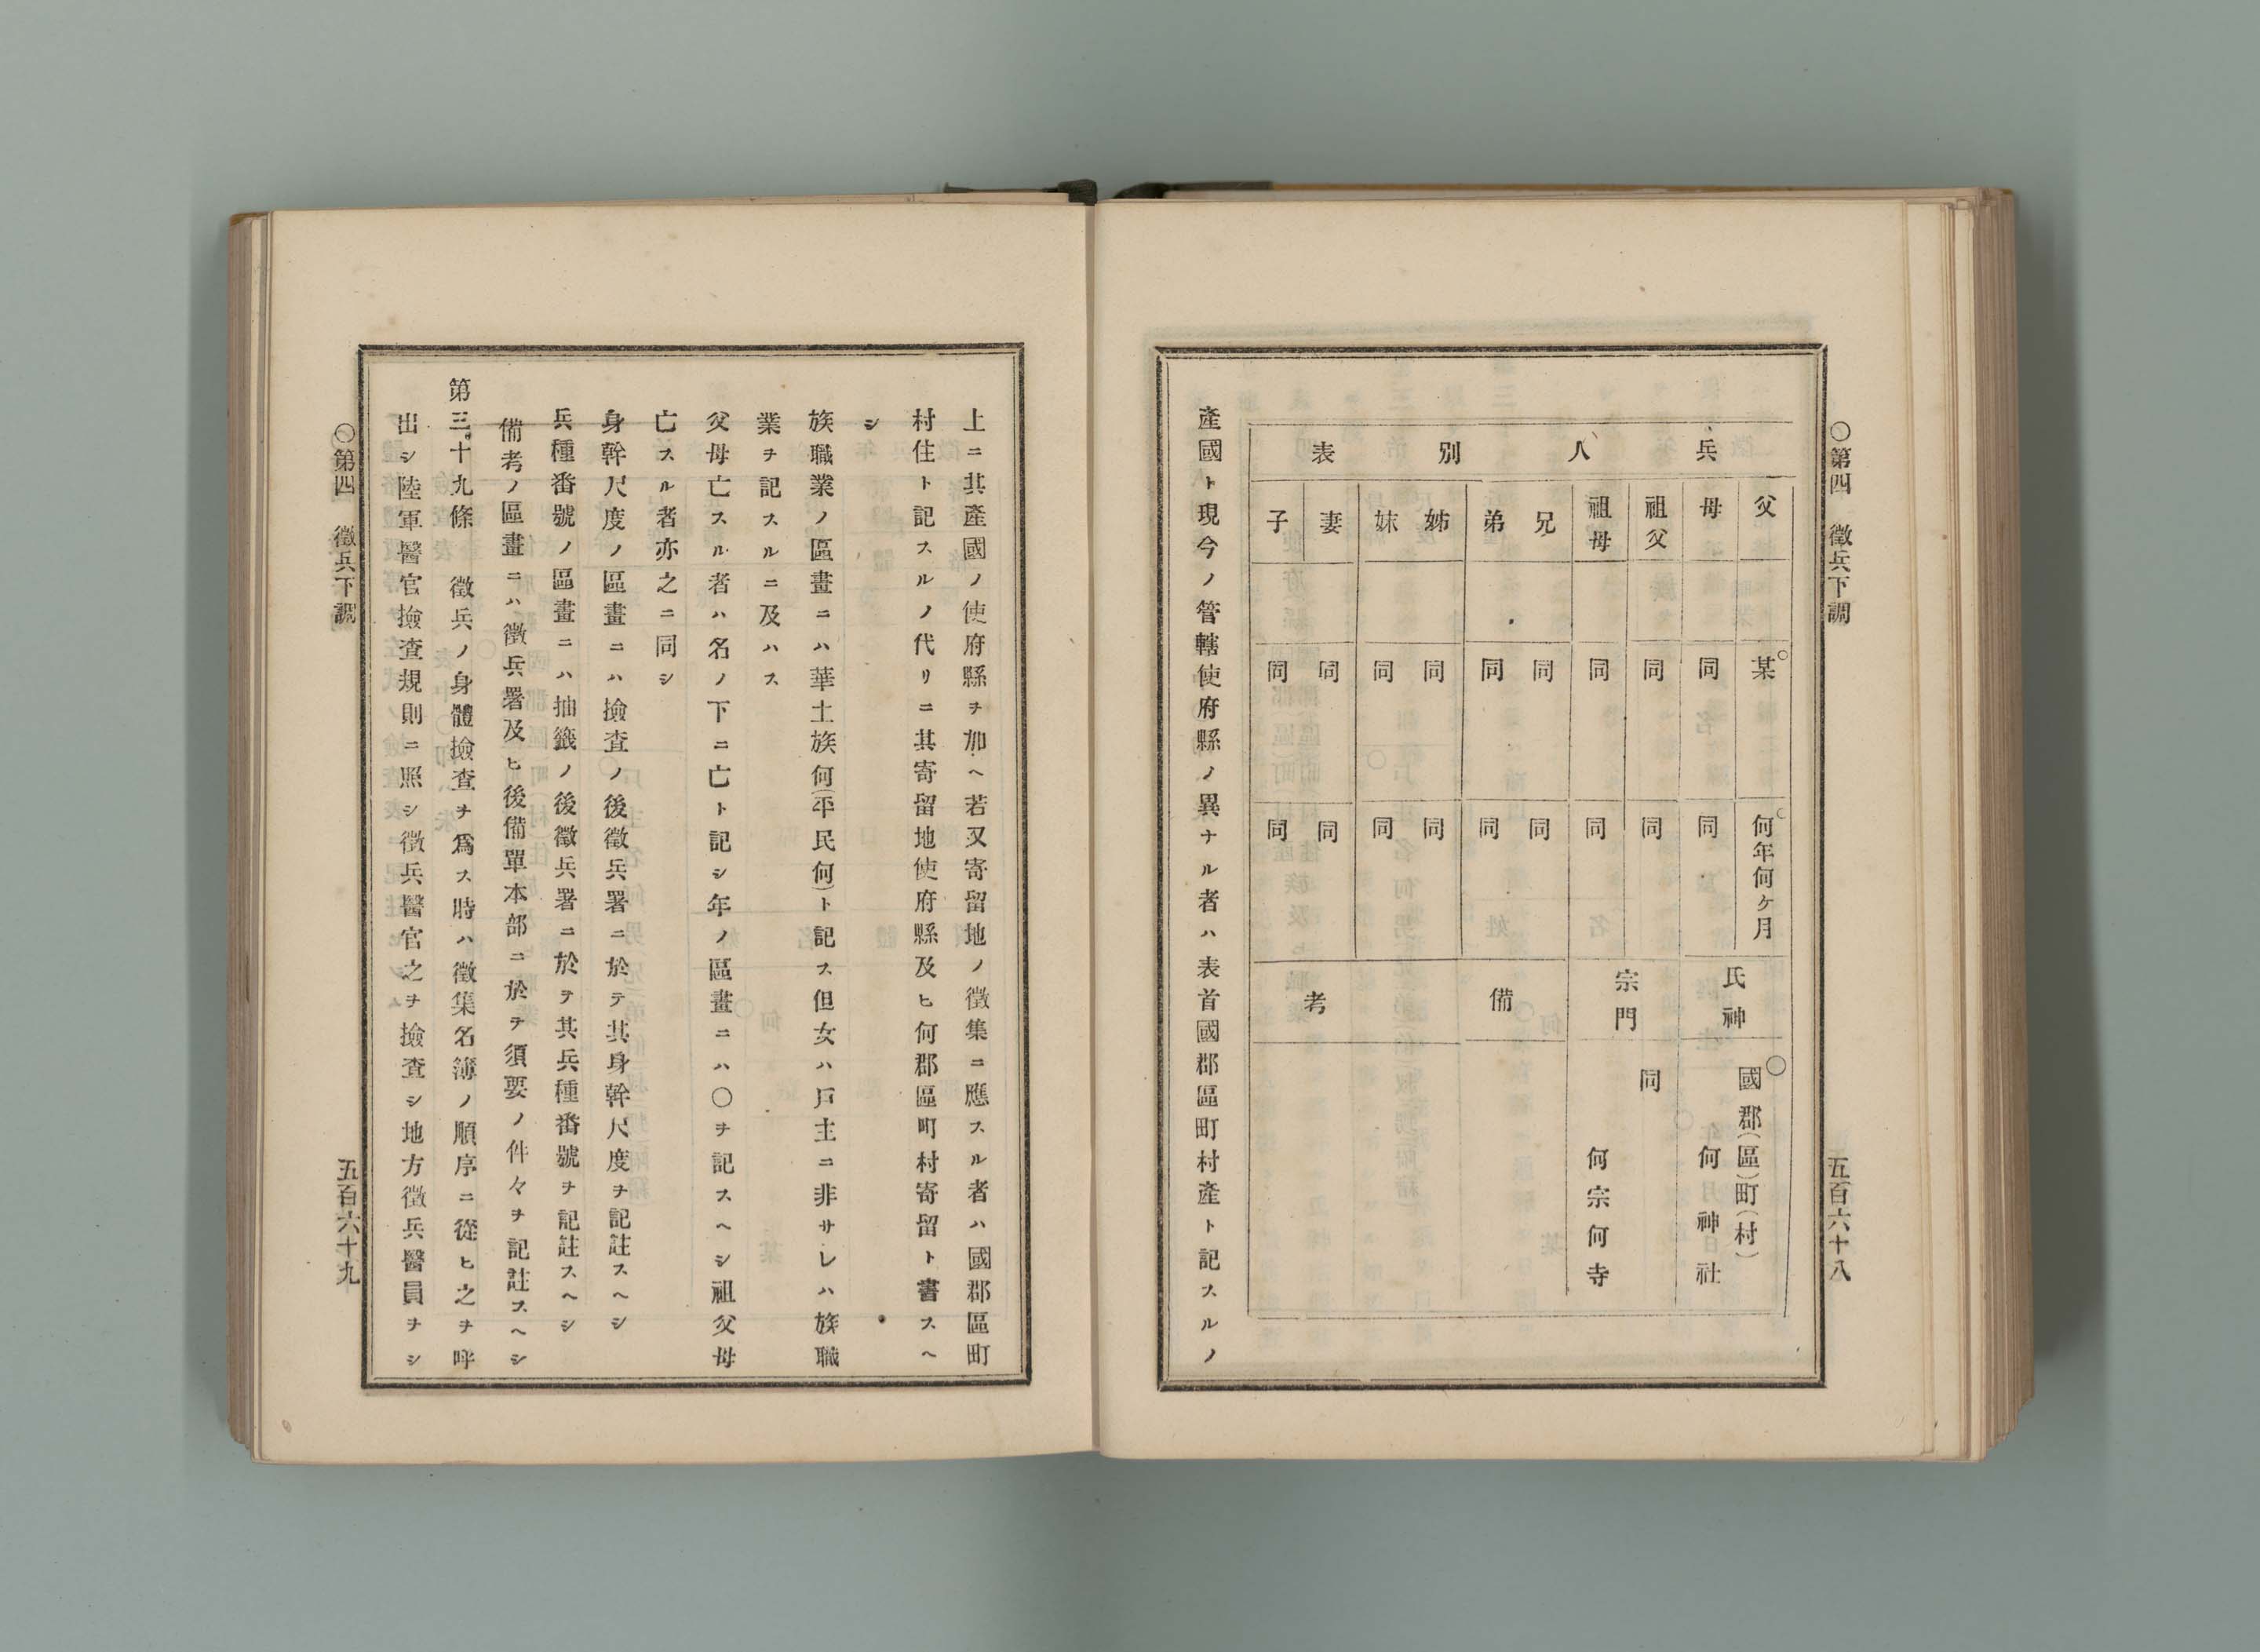 ○第四　徵兵下調
五百六十八
兵人別表
父　某　何年何ヶ月
母　同　同
祖父　同　同
祖母　同　同
兄　同　同
弟　同　同
姊　同　同
妹　同　同
妻　同　同
子　同　同
氏神　○國郡(區)町(村)
何神社
宗門　同
何宗何寺
備考
產國ト現今ノ管轄使府縣ノ異ナル者ハ表首國郡區町村產ト記スルノ
上ニ其產國ノ使府縣ヲ加ヘ若又寄留地ノ徵集ニ應スル者ハ國郡區町
村住ト記スルノ代リニ其寄留地使府縣及ヒ何郡區町村寄留ト書スヘ
シ
族職業ノ區畫ニハ華士族何(平民何)ト記ス但女ハ戶主ニ非サレハ族職
業ヲ記スルニ及ハス
父母亡スル者ハ名ノ下ニ亡ト記シ年ノ區畫ニハ〇ヲ記スヘシ祖父母
亡スル者亦之ニ同シ
身幹尺度ノ區畫ニハ撿査ノ後徵兵署ニ於テ其身幹尺度ヲ記註スヘシ
兵種番號ノ區畫ニハ抽籤ノ後徵兵署ニ於テ其兵種番號ヲ記註スヘシ
備考ノ區畫ニハ徵兵署及ヒ後備軍本部ニ於テ須要ノ件々ヲ記註スヘシ
第三十九條　徵兵ノ身體撿查ヲ爲ス時ハ徵集名簿ノ順序ニ從ヒ之ヲ呼
出シ陸軍醫官撿查規則ニ照シ徵兵醫官之ヲ撿查シ地方徵兵醫員ヲシ
○第四　徵兵下調
五百六十九